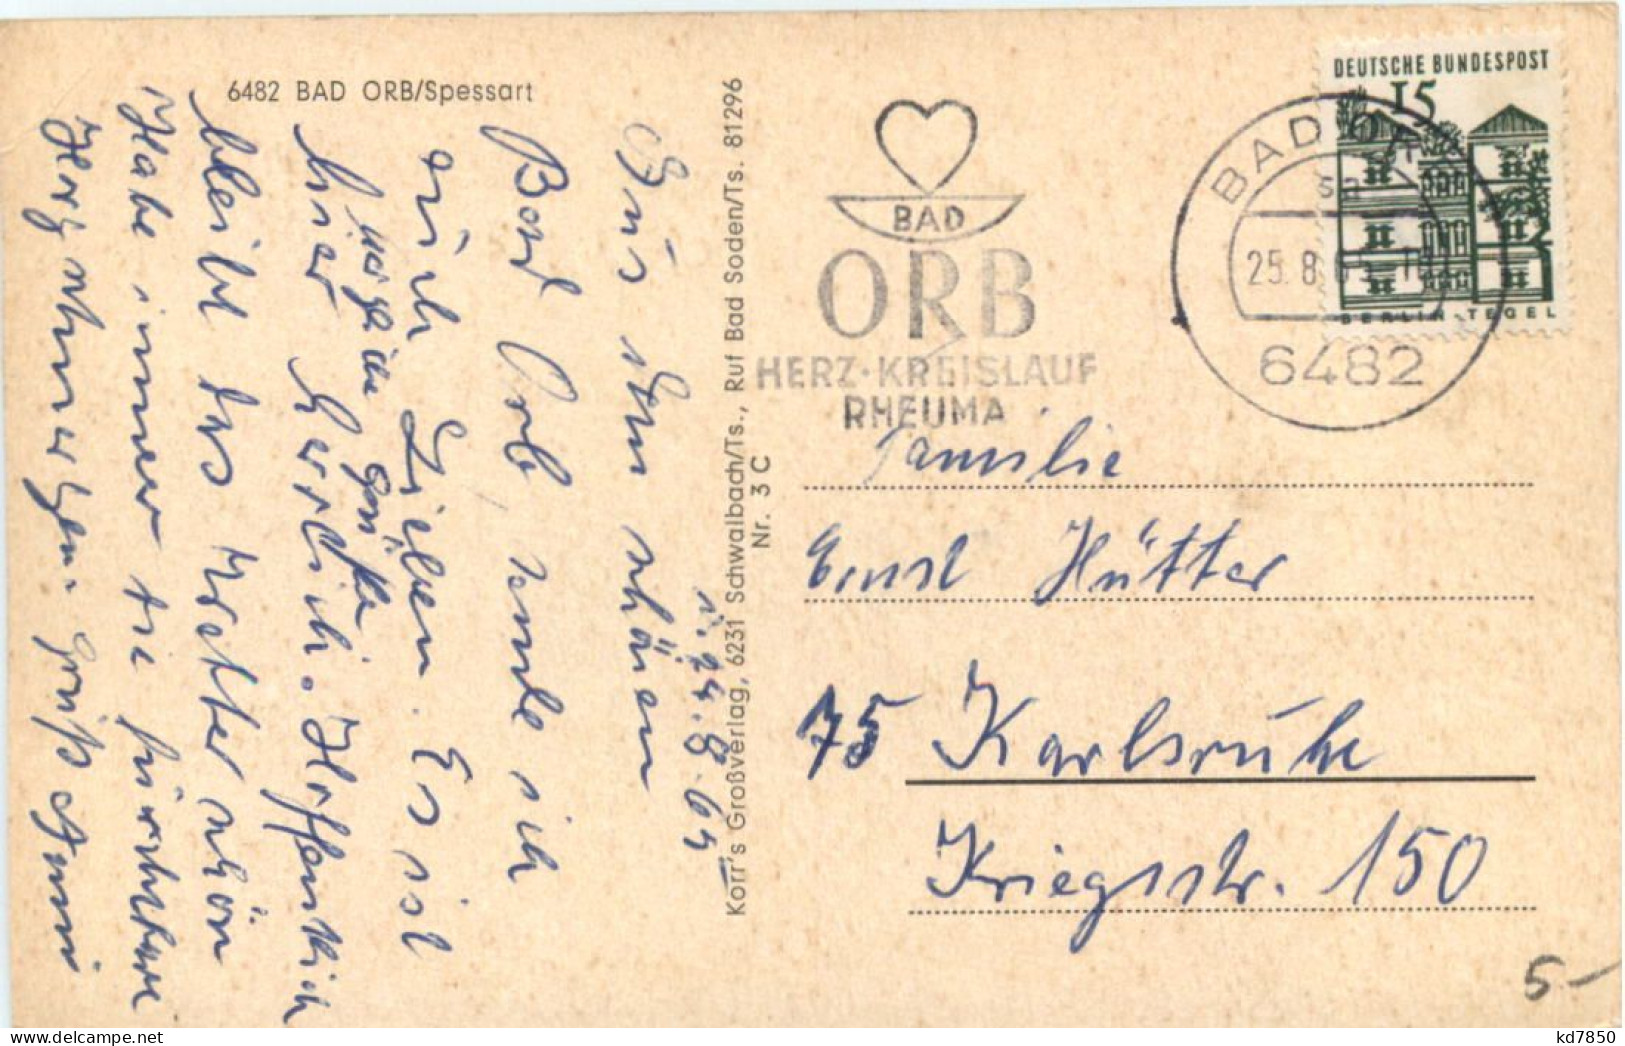 6482 BAD ORB/Spessart
d. 24. 8. 65
Aus dem schönen
Bad Orb, sende ich
euch Lieben. Es ist
hier herrlich. Hoffentlich
bleibt das Wetter schön
Habe immer die furchtbare
Herzschmerzen. Gruß
Korr's Großverlag, 6231 Schwalbach/Ts., Ruf Bad Soden/Ts. 81296
Nr. 3 C
BAD
ORB
HERZ·KREISLAUF
RHEUMA
DEUTSCHE BUNDESPOST
15
BERLIN-TEGEL
BAD ORB
25. 8. 65
6482
Familie
Ernst Hütter
75 Karlsruhe
Kriegsstr. 150
5-
kd7850